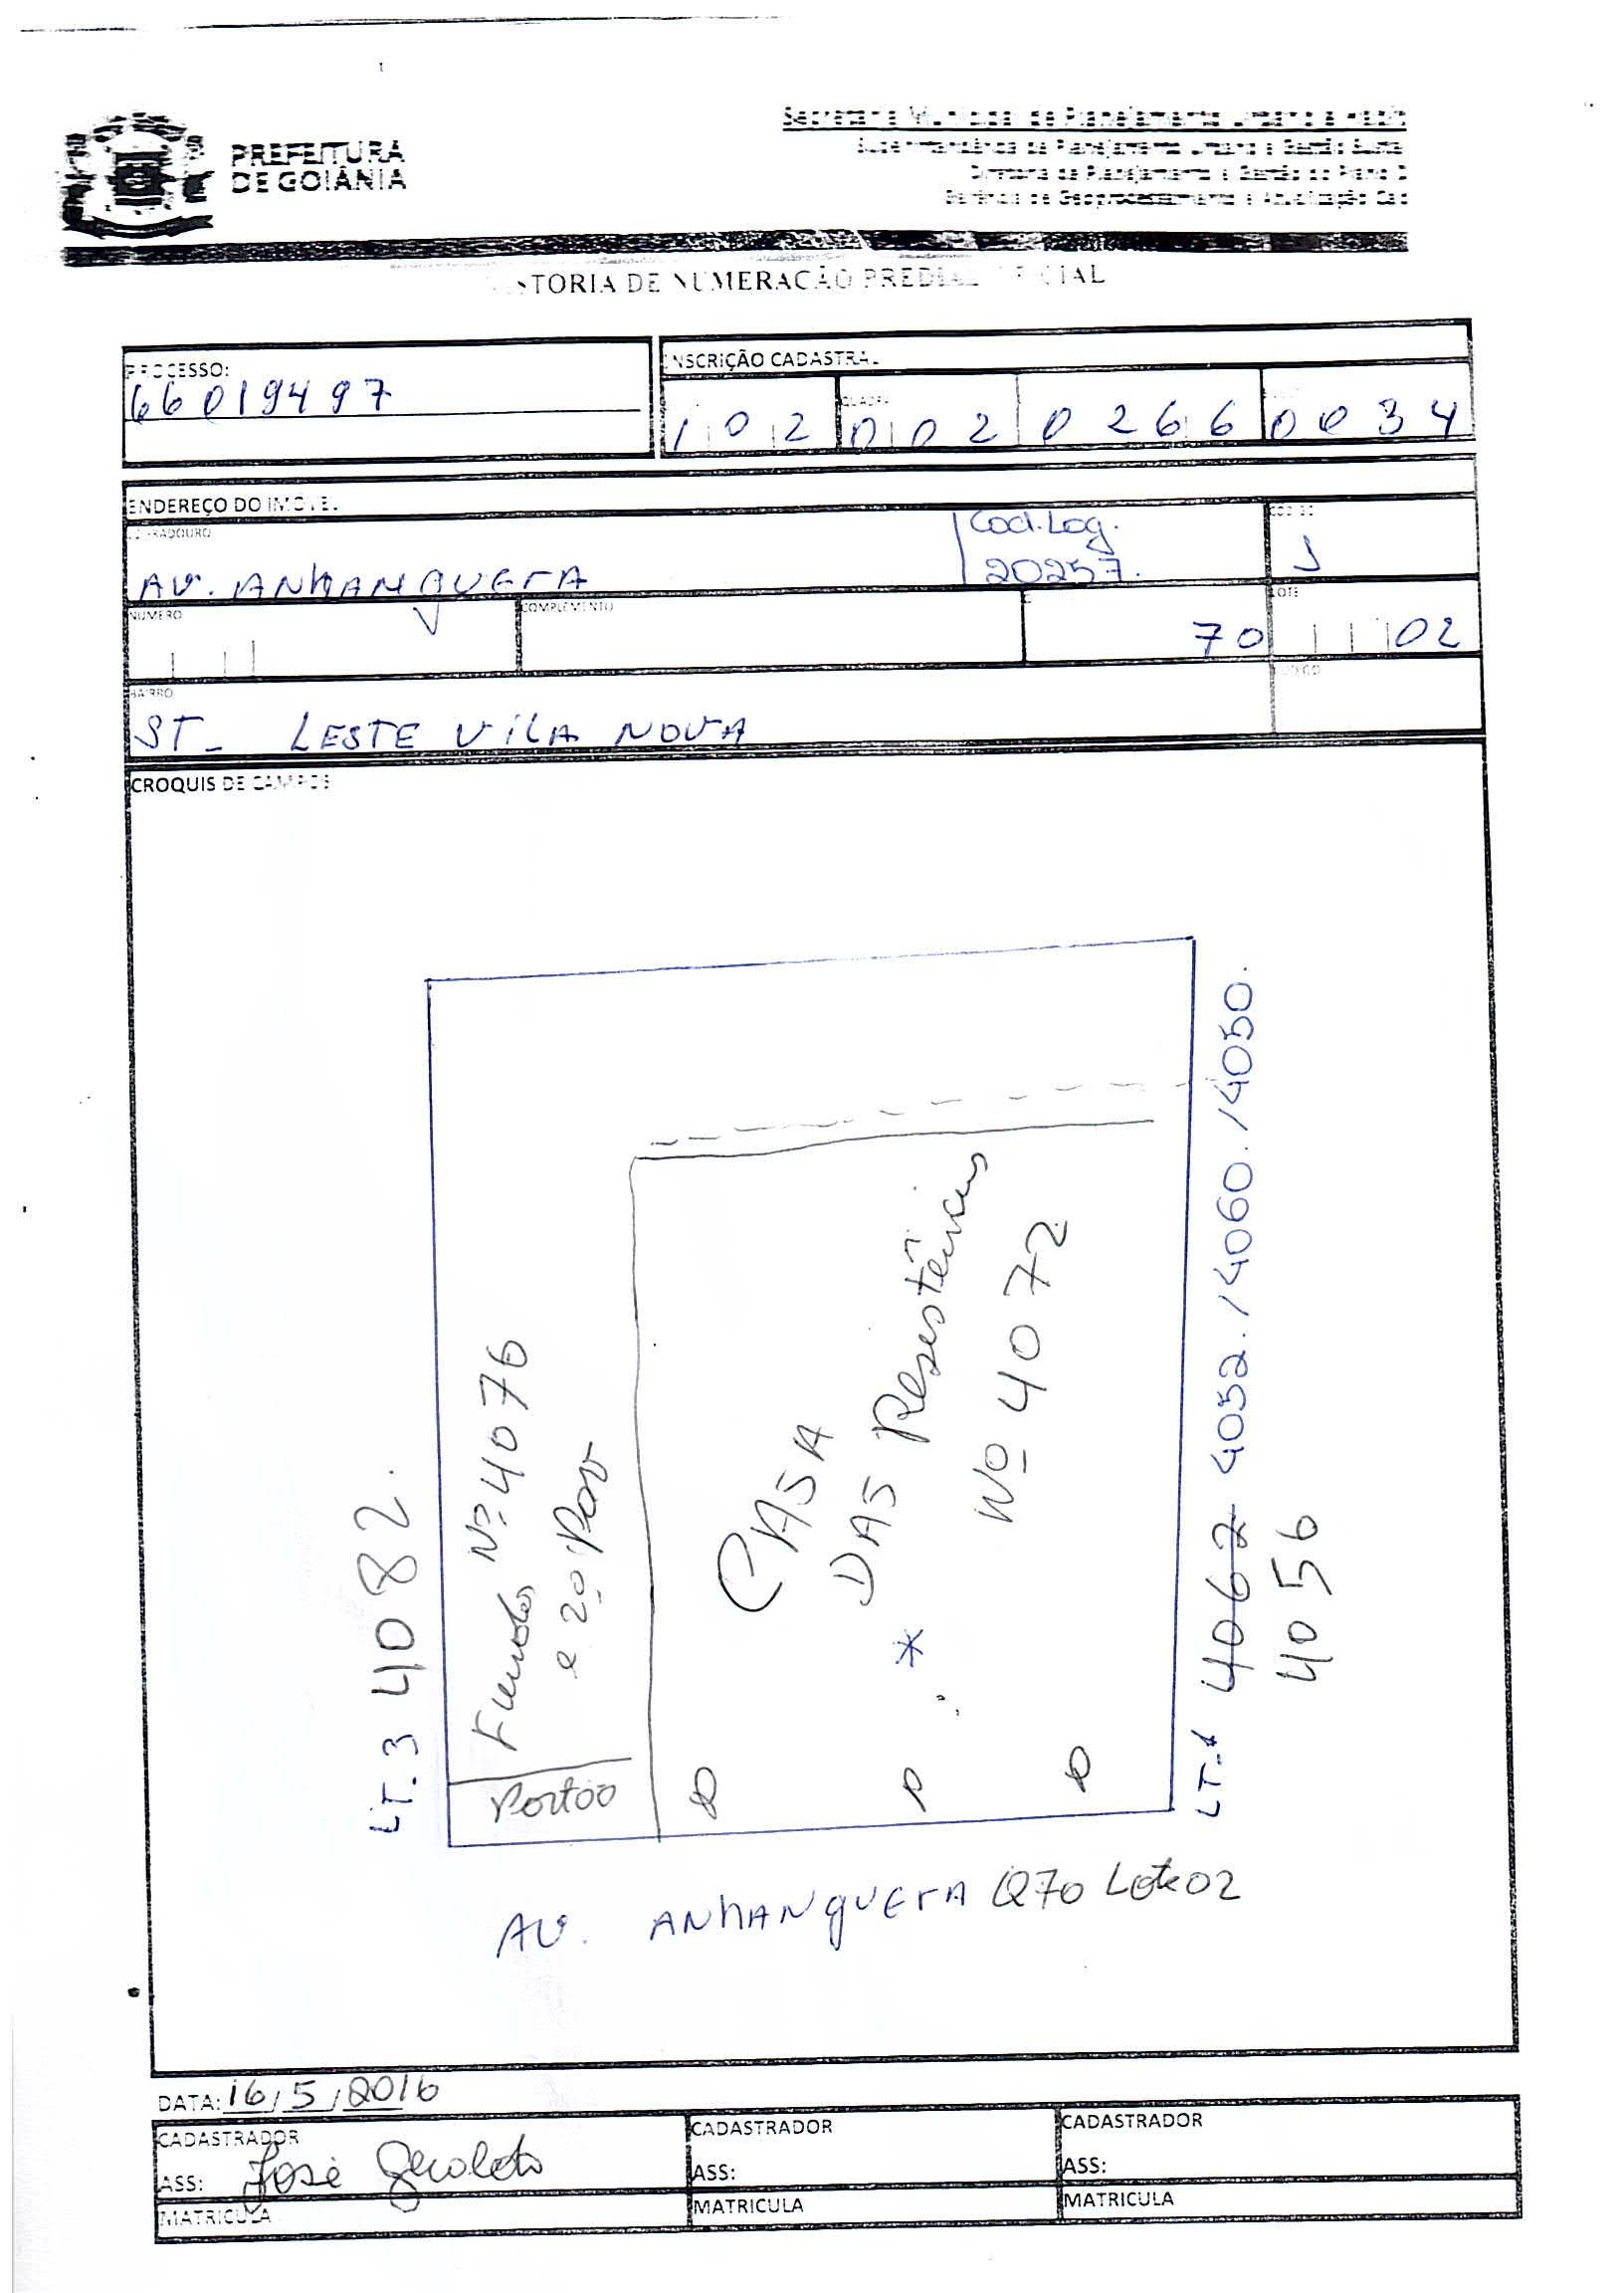 PREFEITURA
DE GOIÂNIA
Secretaria Municipal de Planejamento Urbano e
Superintendência de Planejamento Urbano e Gestão
Diretoria de Planejamento e Gestão do Plano D
Gerência de Geoprocessamento e Atualização Cad
STORIA DE NUMERAÇÃO PREDIAL OFICIAL
PROCESSO:
66019497
INSCRIÇÃO CADASTRAL
QUADRA
102 002 0266 0034
ENDEREÇO DO IMOVEL
LOGRADOURO
Cod.Log.
20257.
CODIGO
AV. ANHANGUERA
NUMERO
COMPLEMENTO
70
LOTE
02
BAIRRO
CODIGO
ST- LESTE VILA NOVA
CROQUIS DE CAMPOS
LT.3 4082.
Fundos Nº 4076
e 2º Pav
Portão
CASA
DAS Resistências
Nº 4072
*
LT.1 4062 4052./4060./4050.
4056
AV. ANHANGUERA Q70 Lote 02
DATA: 16/5/2016
CADASTRADOR
ASS: José Geraldo
MATRICULA
CADASTRADOR
ASS:
MATRICULA
CADASTRADOR
ASS:
MATRICULA